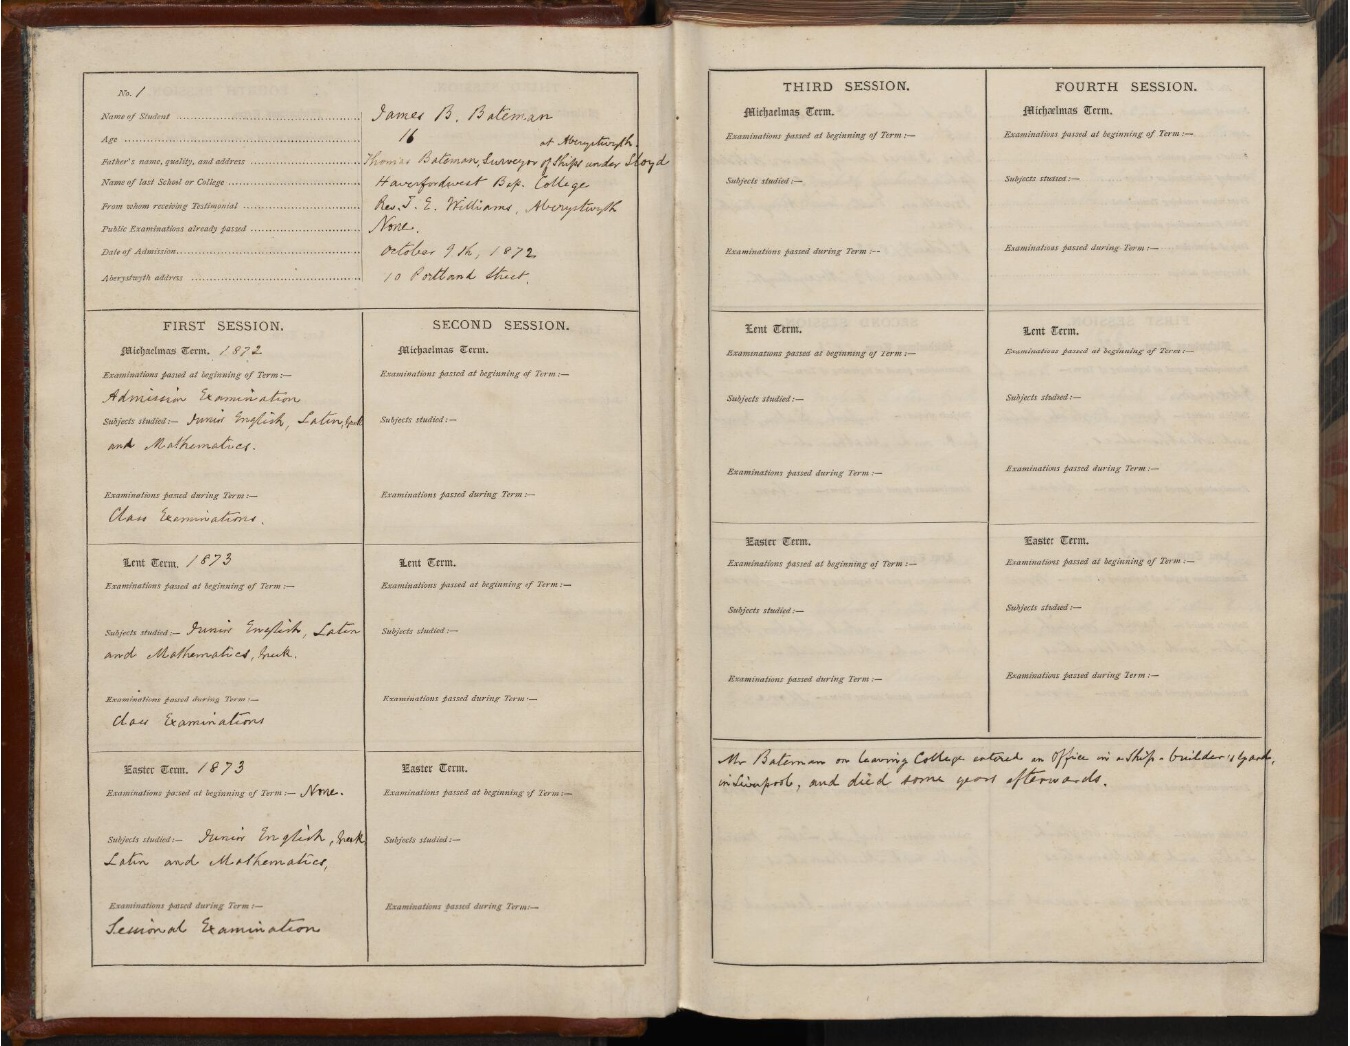 No. 1
Name of Student James B. Bateman
Age 16
at Aberystwyth.
Father's name, quality, and address Thomas Bateman, Surveyor of Ships under Lloyd
Name of last School or College Haverfordwest Bap. College
From whom receiving Testimonial Rev. J. E. Williams, Aberystwyth
Public Examinations already passed None.
Date of Admission October 9th, 1872
Aberystwyth address 10 Portland Street.
FIRST SESSION.
Michaelmas Term. 1872
Examinations passed at beginning of Term:—
Admission Examination
Subjects studied:— Junior English, Latin, Greek
and Mathematics.
Examinations passed during Term:—
Class Examinations.
Lent Term. 1873
Examinations passed at beginning of Term:—
Subjects studied:— Junior English, Latin
and Mathematics, Greek.
Examinations passed during Term:—
Class Examinations
Easter Term. 1873
Examinations passed at beginning of Term:— None.
Subjects studied:— Junior English, Greek
Latin and Mathematics,
Examinations passed during Term:—
Sessional Examination
SECOND SESSION.
Michaelmas Term.
Examinations passed at beginning of Term:—
Subjects studied:—
Examinations passed during Term:—
Lent Term.
Examinations passed at beginning of Term:—
Subjects studied:—
Examinations passed during Term:—
Easter Term.
Examinations passed at beginning of Term:—
Subjects studied:—
Examinations passed during Term:—
THIRD SESSION.
Michaelmas Term.
Examinations passed at beginning of Term:—
Subjects studied:—
Examinations passed during Term:—
Lent Term.
Examinations passed at beginning of Term:—
Subjects studied:—
Examinations passed during Term:—
Easter Term.
Examinations passed at beginning of Term:—
Subjects studied:—
Examinations passed during Term:—
FOURTH SESSION.
Michaelmas Term.
Examinations passed at beginning of Term:—
Subjects studied:—
Examinations passed during Term:—
Lent Term.
Examinations passed at beginning of Term:—
Subjects studied:—
Examinations passed during Term:—
Easter Term.
Examinations passed at beginning of Term:—
Subjects studied:—
Examinations passed during Term:—
Mr Bateman on leaving College entered an Office in a Ship-builder's yard,
in Liverpool, and died some years afterwards.